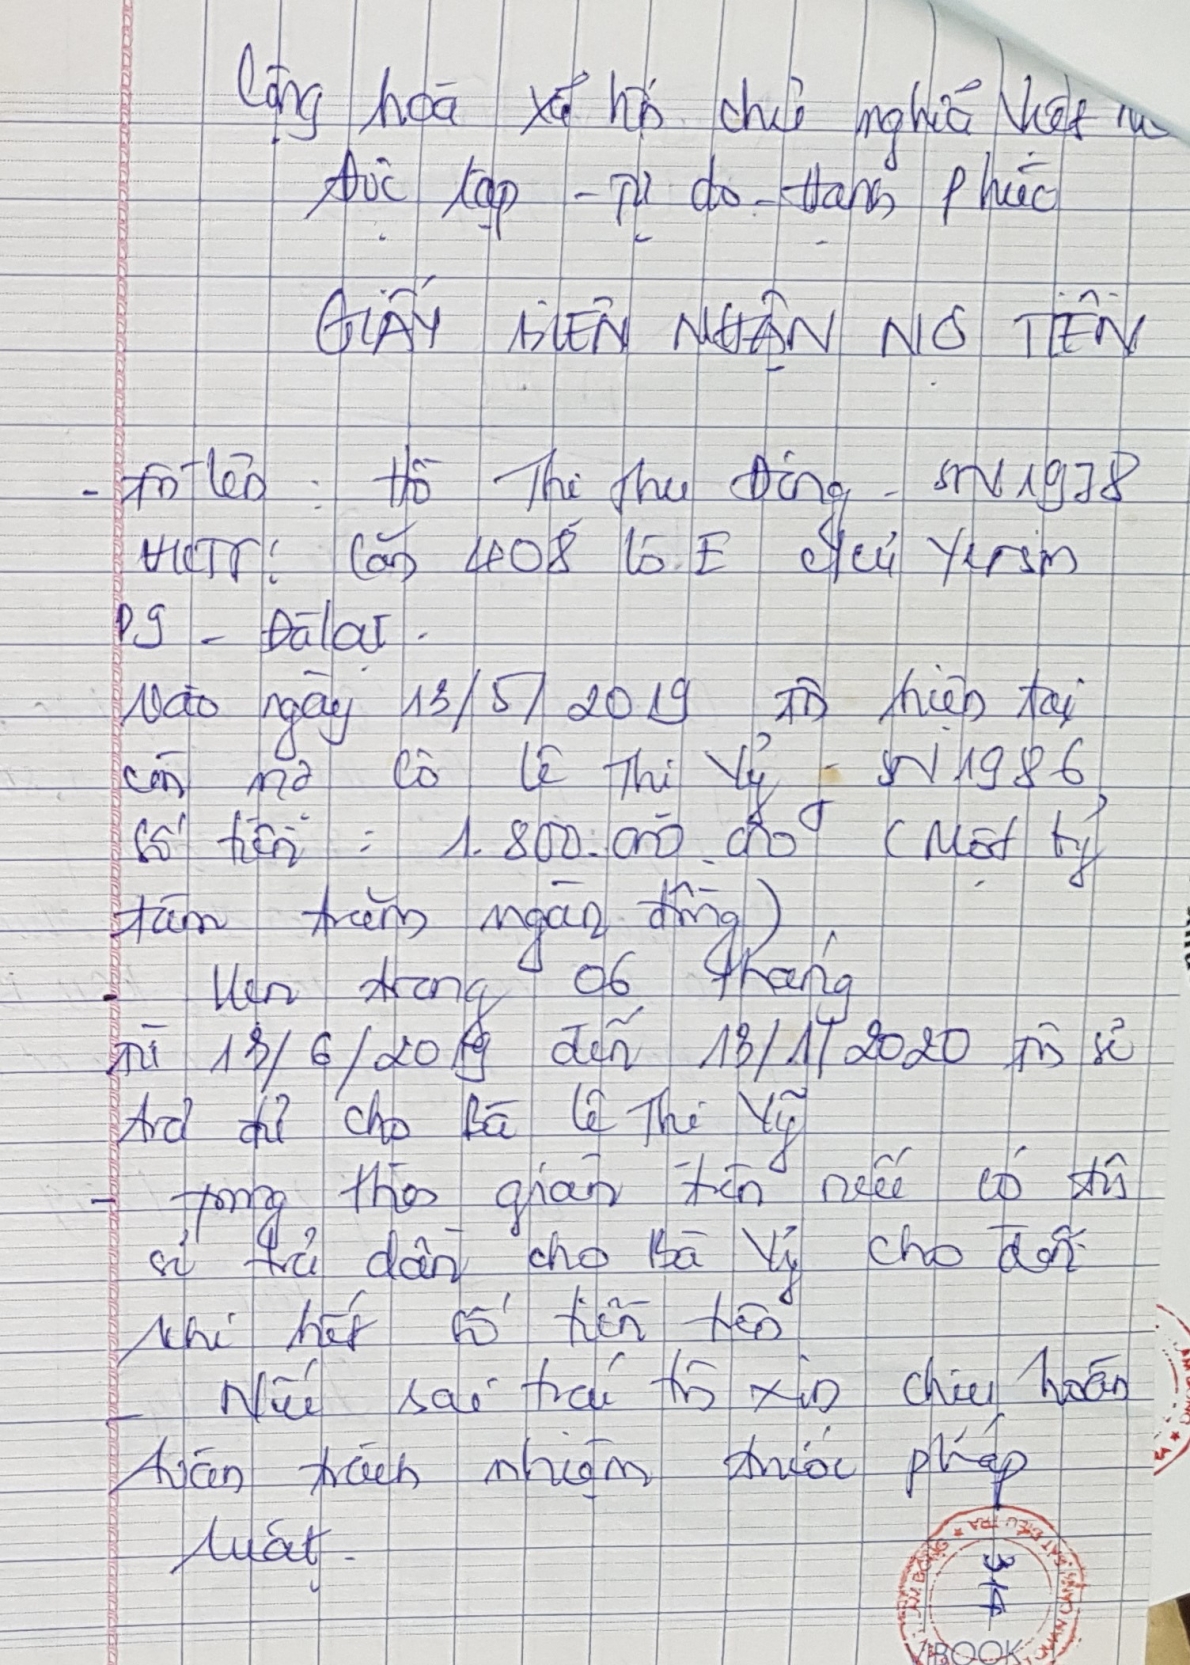 Cộng hoà xã hội chủ nghĩa Việt
Độc lập - Tự do - Hạnh Phúc
GIẤY BIÊN NHẬN NỢ TIỀN
- Tôi tên : Hồ Thị Thu Đông - SN 1978
HKTT: Căn 408 lô E Yersin
P9 - Đà lạt.
Vào ngày 13/5/2019 tôi hiện tại
còn nợ Cô Lê Thị Vỹ - SN 1986
số tiền : 1.800.000.000đ (Một tỷ
tám trăm ngàn đồng)
- Hẹn trong 06 tháng
Từ 13/6/2019 đến 13/11/2020 tôi sẽ
trả đủ cho Bà Lê Thị Vỹ
- Trong thời gian trên nếu có tôi
sẽ trả dần cho Bà Vỹ cho đến
khi hết số tiền trên
- Nếu sai trái tôi xin chịu hoàn
toàn trách nhiệm trước pháp
luật.
314